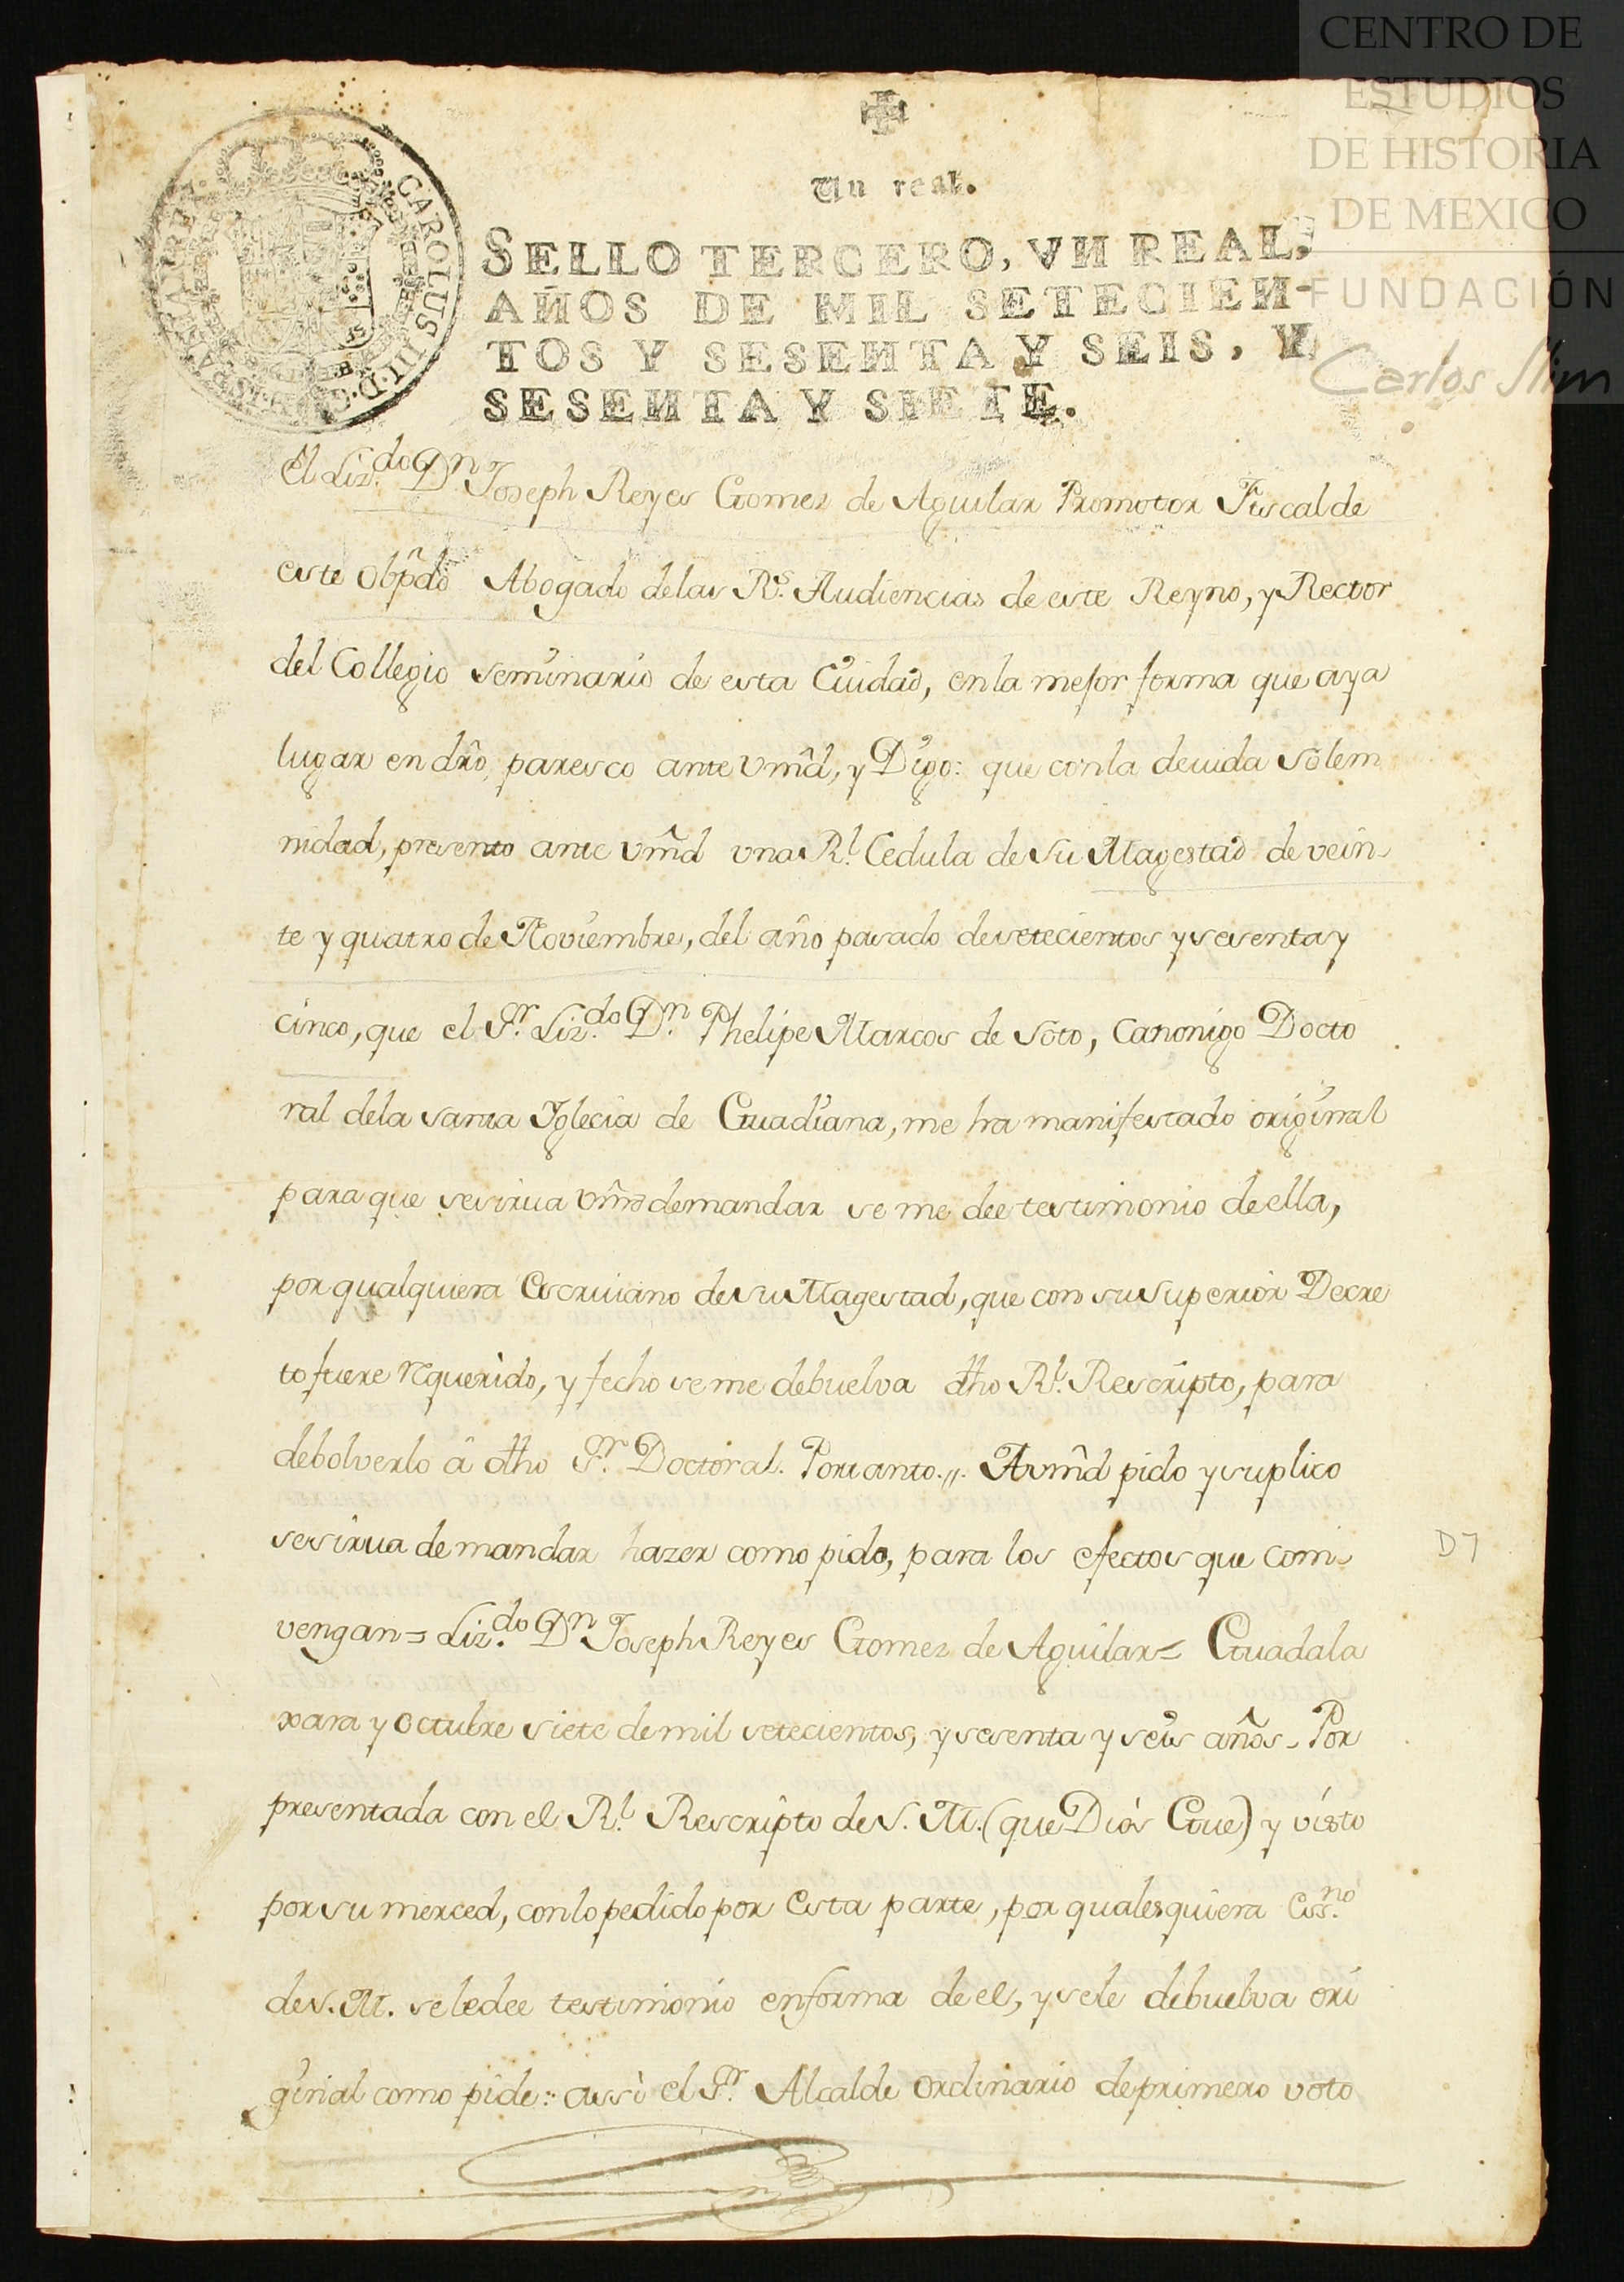 CENTRO DE
ESTUDIOS
DE HISTORIA
DE MEXICO
FUNDACIÓN
Carlos Slim
Un real.
CAROLUS III D. G. HISPANIAR REX
SELLO TERCERO, VN REAL,
AÑOS DE MIL SETECIEN-
TOS Y SESENTA Y SEIS, Y
SESENTA Y SIETE.
El Liz.do Dn. Joseph Reyes Gomez de Aguilar Promotor Fiscal de
este Obp̃do Abogado delas Rs. Audiencias de este Reyno, y Rector
del Collegio Seminario de esta Ciudad, enla mejor forma que aya
lugar en dr̃o, paresco ante Vm̃d, y Digo: que conla devida Solem
nidad, presento ante Vm̃d vna Rl. Cedula de Su Magestad de vein-
te y quatro de Noviembre, del año pasado desetecientos y sesenta y
cinco, que el Sr. Liz.do Dn. Phelipe Marcos de Soto, Canonigo Docto
ral dela santa Iglecia de Guadiana, me ha manifestado original
para que sesirua Vm̃d demandar se me dee testimonio de ella,
por qualquiera Escruiano de su Magestad, que con su Superior Decre
to fuere requerido, y fecho se me debuelva dho Rl. Rescripto, para
debolverlo â dho Sr. Doctoral. Portanto.,,. A vm̃d pido y suplico
sesirua demandar hazer como pido, para los efectos que com-
vengan = Liz.do Dn Joseph Reyes Gomez de Aguilar = Guadala
xara y Octubre siete de mil setecientos, y sesenta y seis años - Por
presentada con el Rl. Rescripto de S. M. (que Dios Gue) y visto
por su merced, con lo pedido por esta parte, por qualesquiera Ess.no
de S. M. se ledee testimonio enforma de el, y sele debuelva ori
ginal como pide: assi el Sr. Alcalde ordinario de primero voto
D7